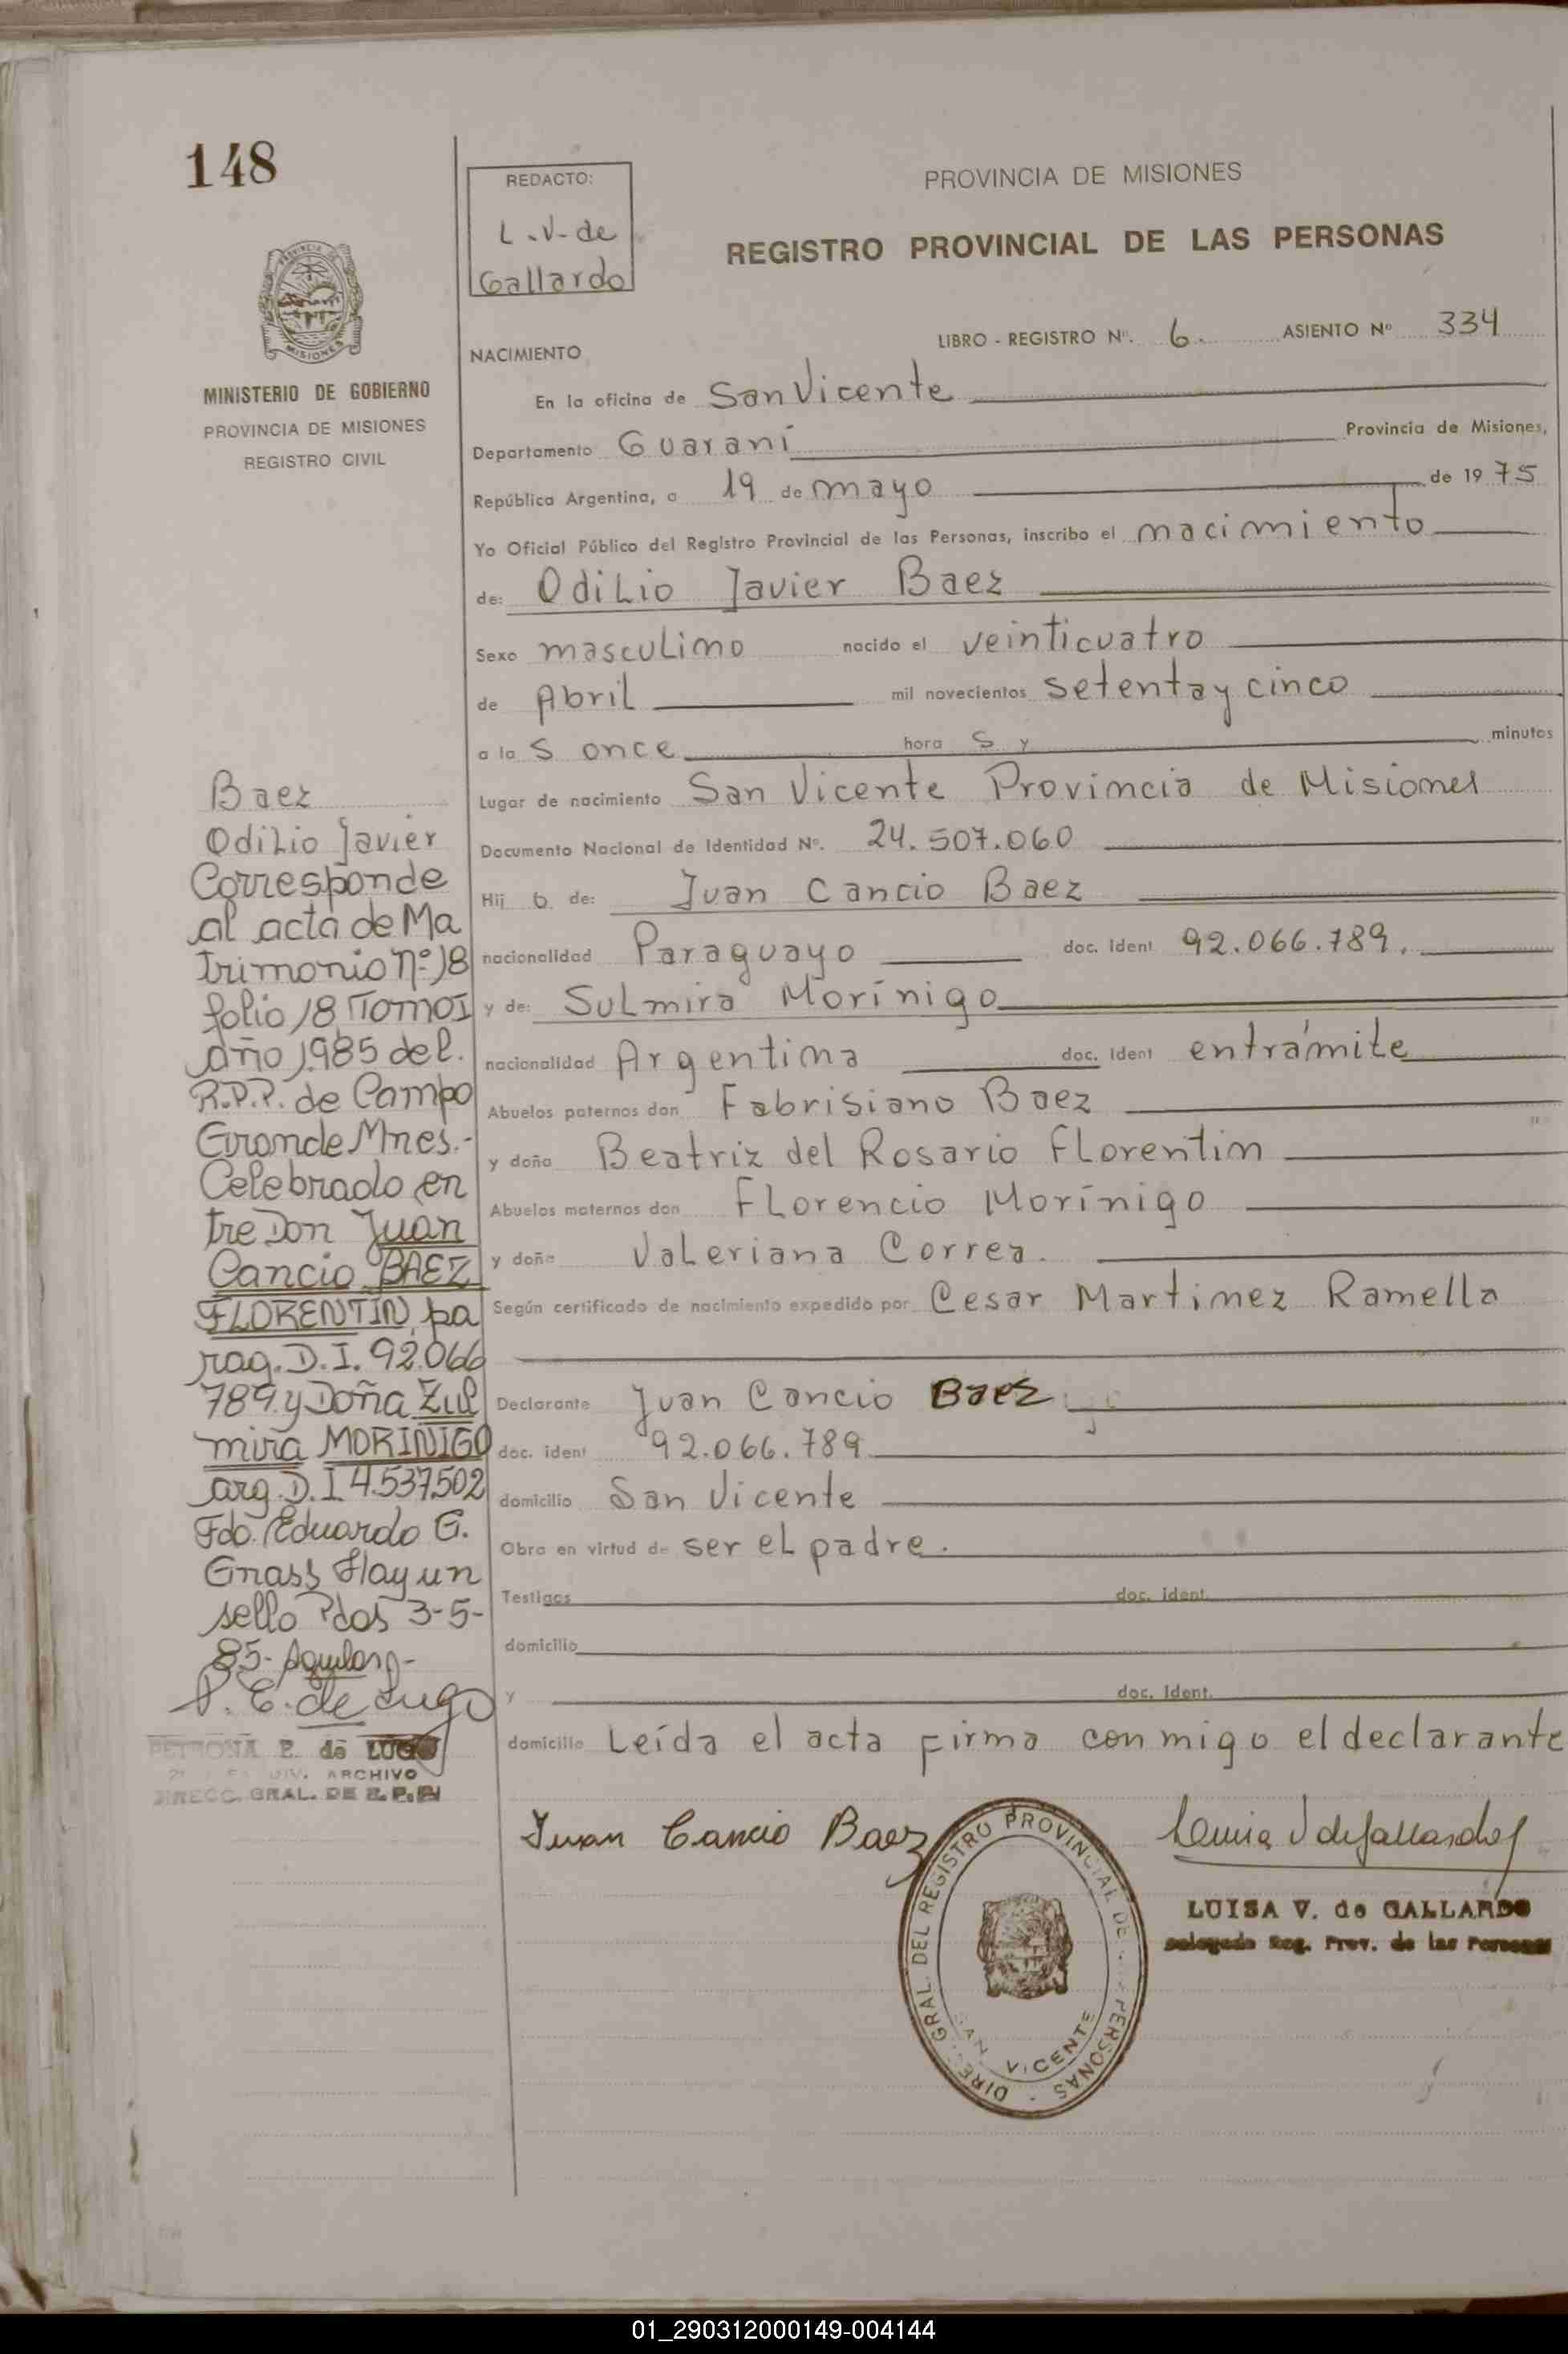 148
PROVINCIA DE MISIONES
REGISTRO PROVINCIAL DE LAS PERSONAS
REDACTO:
L.V. de
Gallardo
MISIONES
MINISTERIO DE GOBIERNO
PROVINCIA DE MISIONES
REGISTRO CIVIL
LIBRO - REGISTRO Nº. 6. ASIENTO Nº 334
NACIMIENTO
En la oficina de San Vicente
Departamento Guaraní Provincia de Misiones,
República Argentina, a 19 de mayo de 1975
Yo Oficial Público del Registro Provincial de las Personas, inscribo el nacimiento
de: Odilio Javier Baez
Sexo masculino nacido el veinticuatro
de Abril mil novecientos setenta y cinco
a las once horas y minutos
Lugar de nacimiento San Vicente Provincia de Misiones
Documento Nacional de Identidad Nº. 24.507.060
Hijo de: Juan Cancio Baez
nacionalidad Paraguayo doc. Ident 92.066.789.
y de: Sulmira Morínigo
nacionalidad Argentina doc. Ident entrámite
Abuelos paternos don Fabrisiano Baez
y doña Beatriz del Rosario Florentin
Abuelos maternos don Florencio Morínigo
y doña Valeriana Correa.
Según certificado de nacimiento expedido por Cesar Martinez Ramella
Declarante Juan Cancio Baez
doc. ident 92.066.789
domicilio San Vicente
Obra en virtud de ser el padre.
Testigos doc. ident.
domicilio
y doc. Ident.
domicilio Leída el acta firma conmigo el declarante
Baez
Odilio Javier
Corresponde
al acta de Ma
trimonio Nº 18
folio 18 Tomo I
año 1985 del.
R.P.P. de Campo
Grande Mnes.-
Celebrado en
tre Don Juan
Cancio BAEZ
FLORENTÍN, pa
rag. D.I. 92.066
789 y Doña Zul
mira MORINIGO
arg. D.I 4.537.502
Fdo. Eduardo G.
Grass Hay un
sello Pdas 3-5-
85-
P. E. de Lugo
PETRONA E. de LUGO
DIV. ARCHIVO
DIRECC. GRAL. DE R.P.P.
Juan Cancio Baez
Luisa V de Gallardo
LUISA V. de GALLARDO
Delegada Reg. Prov. de las Personas
DIREC. GRAL. DEL REGISTRO PROVINCIAL DE PERSONAS
SAN VICENTE
01_290312000149-004144